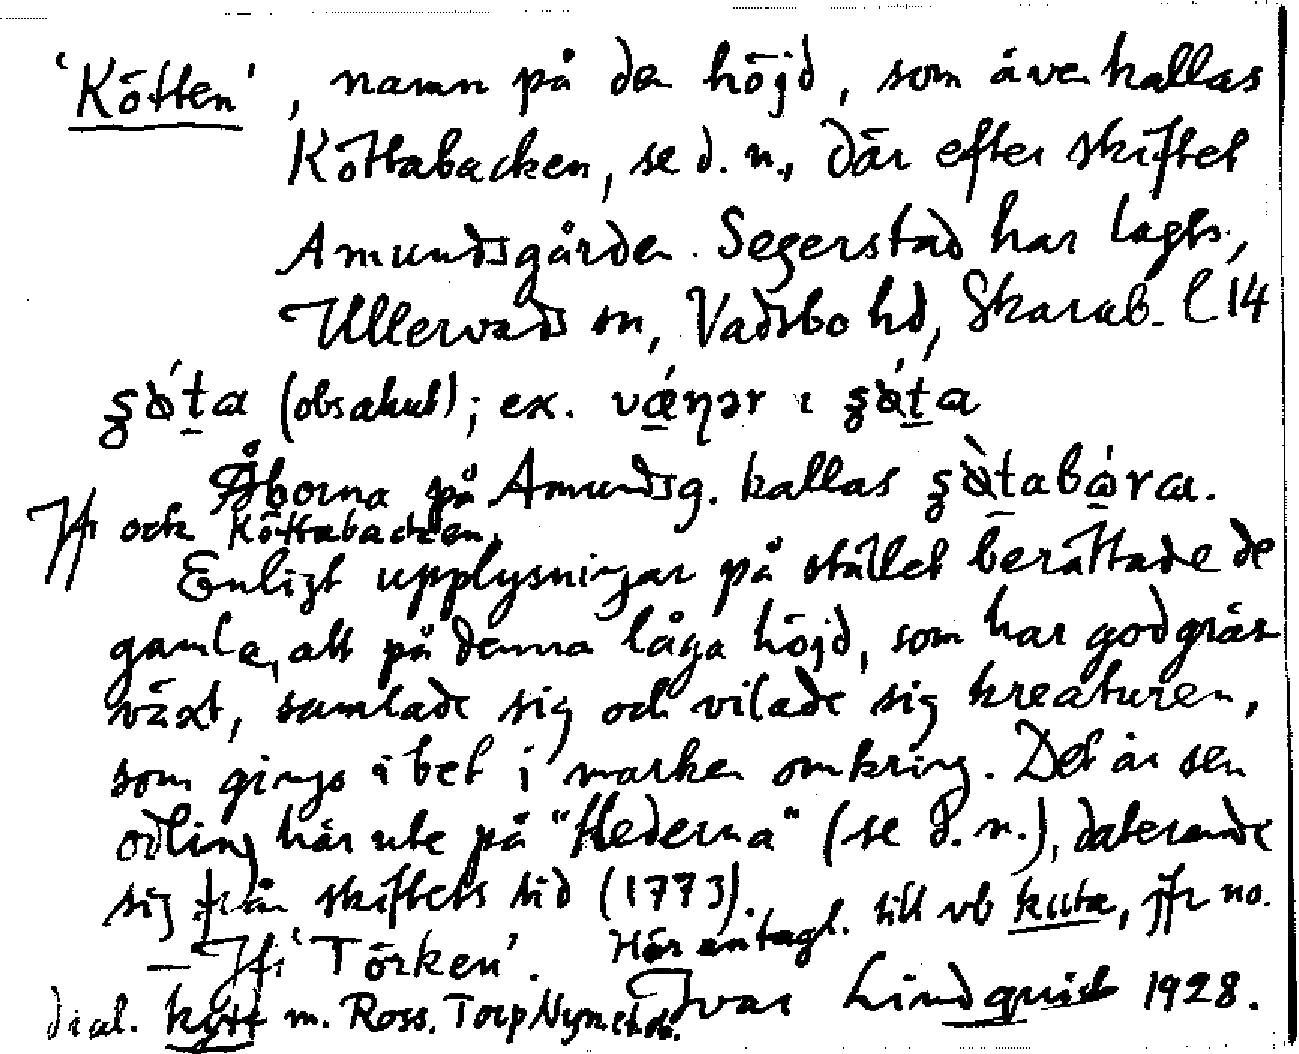 'Kötten', namn på den höjd, som även kallas
Köttabacken, se d. n., där efter skiftet
Amundsgården Segerstad har lagts,
Ullervads sn, Vadsbo hd, Skarab. l 14
(obsakut); ex.
Åborna på Amundsg. kallas
Jfr och Köttabacken.
Enligt upplysningar på stället berättade de
gamla, att på denna låga höjd, som har god gräs-
växt, samlade sig och vilade sig kreaturen,
som gingo i bet i marken omkring. Det är sen
odling här ute på "Hederna" (se d. n.), daterande
sig från skiftets tid (1773).
Hör antagl. till vb kuta, jfr no.
— Jfr 'Törken'.
dial. kytt m. Ross. Torp Nyno etc.
Ivar Lindquist 1928.